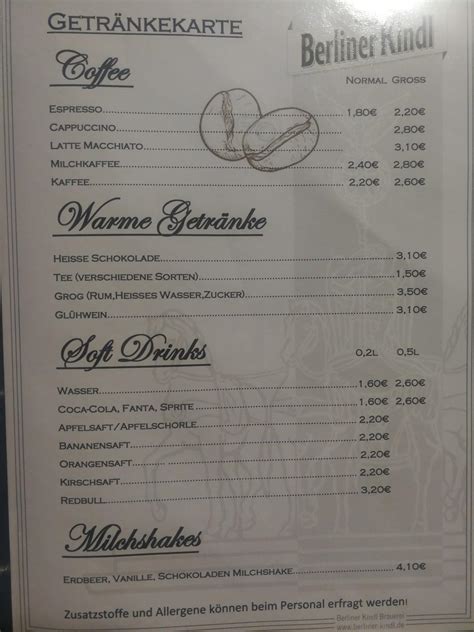 GETRÄNKEKARTE
Berliner Kindl
Coffee
NORMAL GROSS
ESPRESSO 1,80€ 2,20€
CAPPUCCINO 2,80€
LATTE MACCHIATO 3,10€
MILCHKAFFEE 2,40€ 2,80€
KAFFEE 2,20€ 2,60€
Warme Getränke
HEISSE SCHOKOLADE 3,10€
TEE (VERSCHIEDENE SORTEN) 1,50€
GROG (RUM,HEISSES WASSER,ZUCKER) 3,50€
GLÜHWEIN 3,10€
Soft Drinks
0,2L 0,5L
WASSER 1,60€ 2,60€
COCA-COLA, FANTA, SPRITE 1,60€ 2,60€
APFELSAFT/APFELSCHORLE 2,20€
BANANENSAFT 2,20€
ORANGENSAFT 2,20€
KIRSCHSAFT 2,20€
REDBULL 3,20€
Milchshakes
ERDBEER, VANILLE, SCHOKOLADEN MILCHSHAKE 4,10€
Zusatzstoffe und Allergene können beim Personal erfragt werden!
Berliner Kindl Brauerei
www.berliner-kindl.de